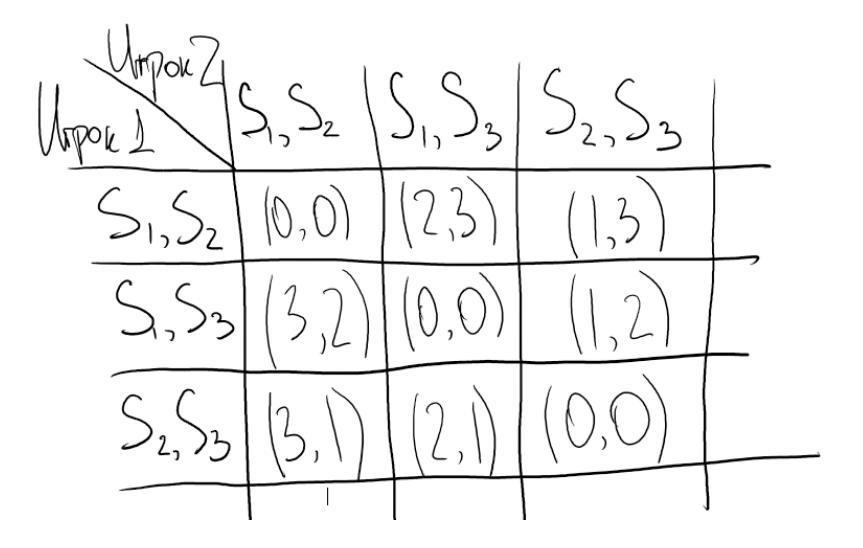 Игрок 2
Игрок 1
S₁,S₂ S₁,S₃ S₂,S₃
S₁,S₂ (0,0) (2,3) (1,3)
S₁,S₃ (3,2) (0,0) (1,2)
S₂,S₃ (3,1) (2,1) (0,0)